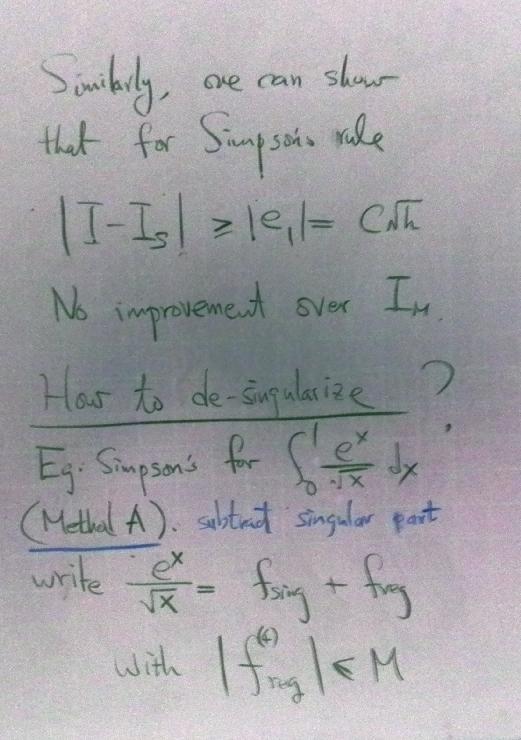 Similarly, one can show
that for Simpson's rule
|I-I_S| ≥ |e_1| = C√h
No improvement over I_M.
How to de-singularize ?
Eg. Simpson's for ∫_0^1 e^x/√x dx
(Method A). subtract singular part
write e^x/√x = f_sing + f_reg
with |f_reg^(4)| ≤ M